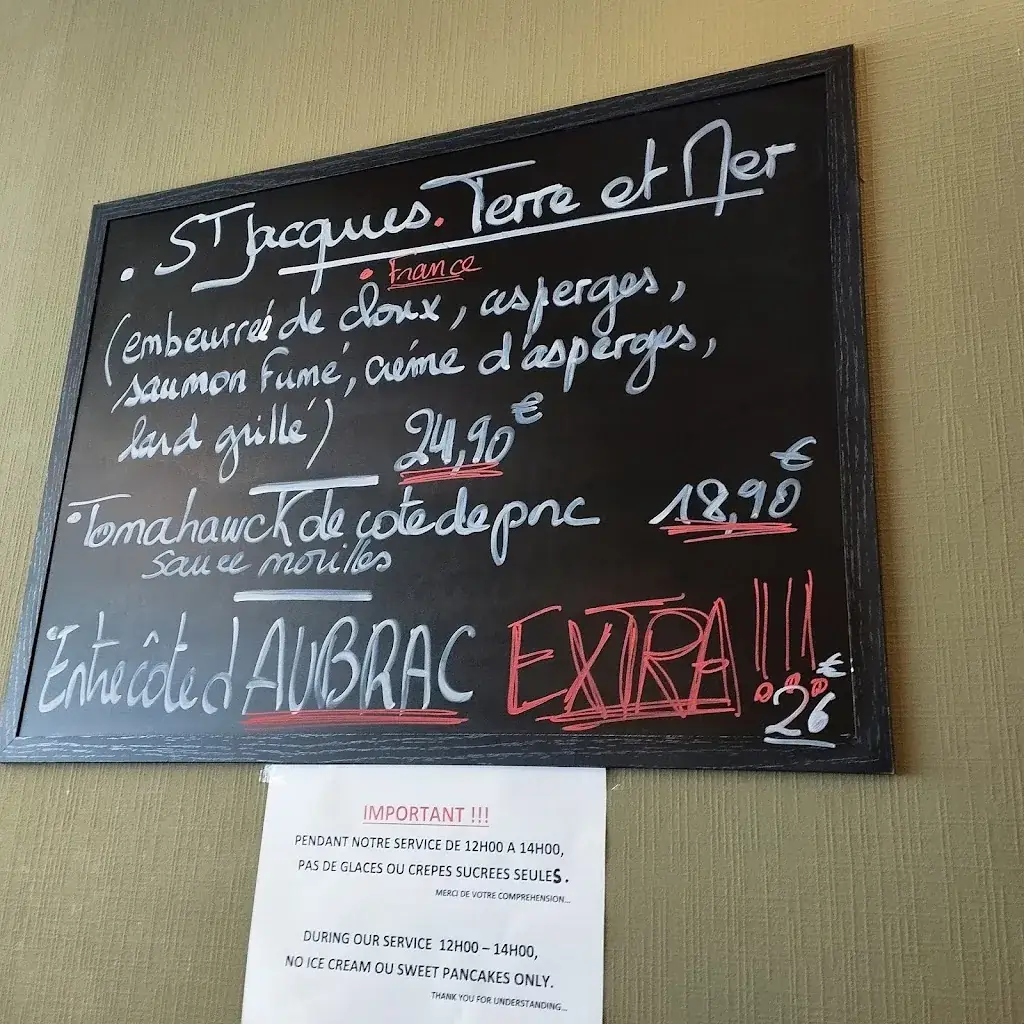 • ST Jacques. Terre et Mer
• France
(embeurrée de choux, asperges,
saumon fumé, crème d'asperges,
lard grillé) 24,90€
• Tomahawck de cote de porc 18,90€
sauce morilles
• Entrecôte d'AUBRAC EXTRA !!! 26€
IMPORTANT !!!
PENDANT NOTRE SERVICE DE 12H00 A 14H00,
PAS DE GLACES OU CREPES SUCREES SEULES.
MERCI DE VOTRE COMPREHENSION...
DURING OUR SERVICE 12H00 – 14H00,
NO ICE CREAM OU SWEET PANCAKES ONLY.
THANK YOU FOR UNDERSTANDING...